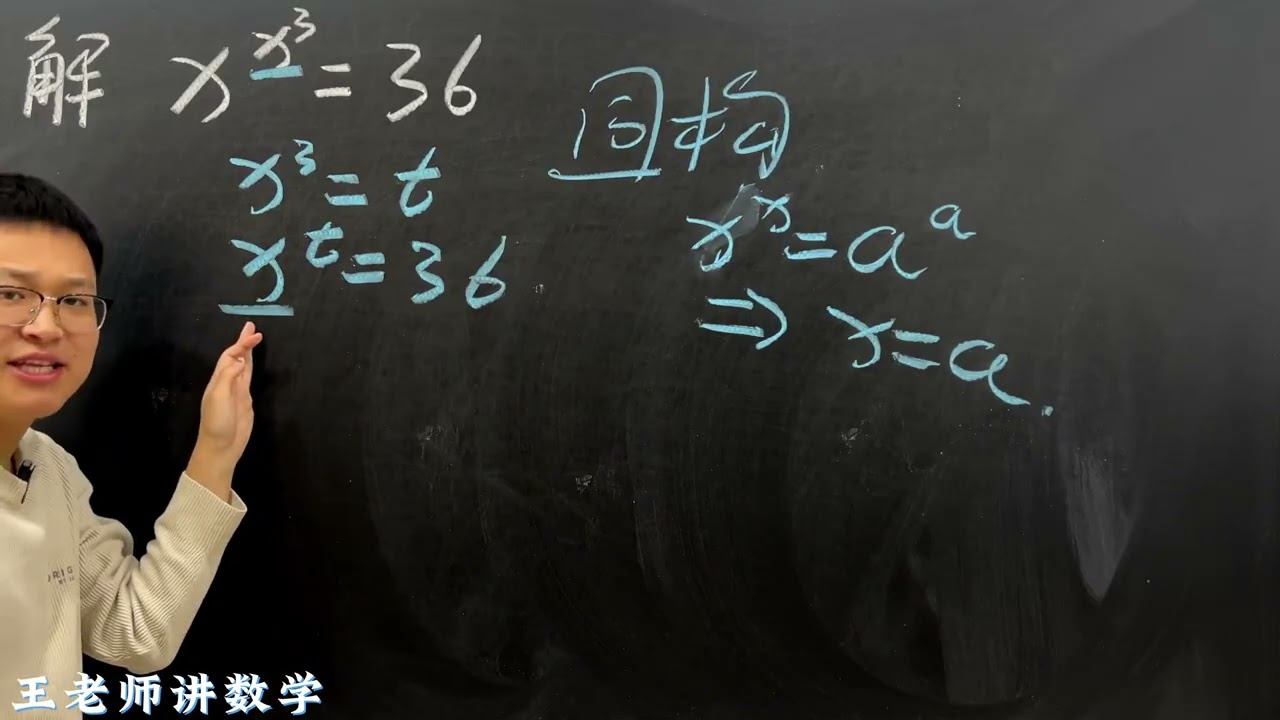 解 x^{x^3} = 36
x^3 = t
x^t = 36
同构
x^x = a^a
⇒ x = a.
王老师讲数学